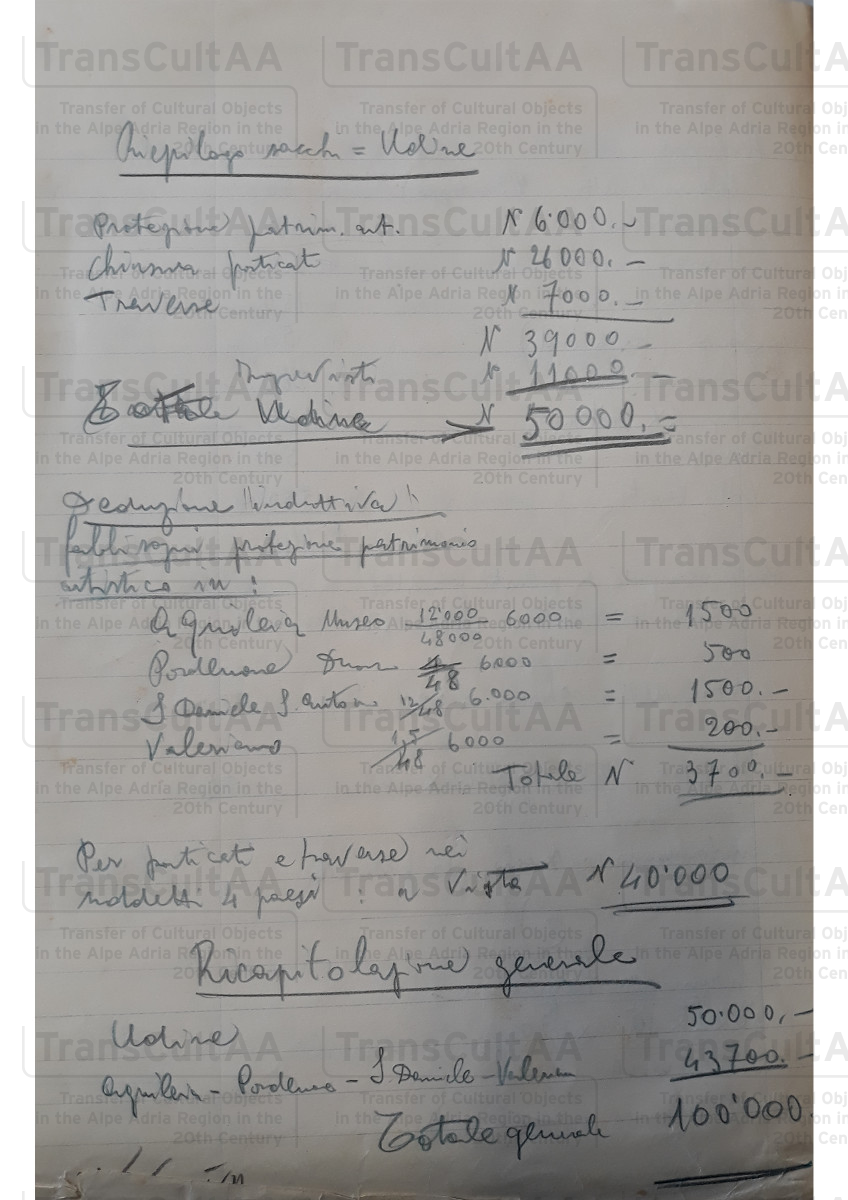 Riepilogo sacchi = Udine
Protezione patrim. art. N 6.000.-
Chiusura porticati N 26000.-
Traverse N 7000.-
N 39000 -
Imprevisti N 11000.-
Totale Udine N 50000.=
Deduzione "induttiva"
fabbisogni protezione patrimonio
artistico in :
Aquileia Museo 12'000/48000 6000 = 1500
Pordenone Duomo 4/48 6000 = 500
S Daniele S. Antonio 12/48 6.000 = 1500.-
Valeriano 1,5/48 6000 = 200.-
Totale N 3700.-
Per porticati e traverse nei
suddetti 4 paesi : a vista N 40'000
Ricapitolazione generale
Udine 50.000,-
Aquileia - Pordenone - S Daniele - Valeriano 43700.-
Totale generale 100'000.
TransCultAA
Transfer of Cultural Objects
in the Alpe Adria Region in the
20th Century